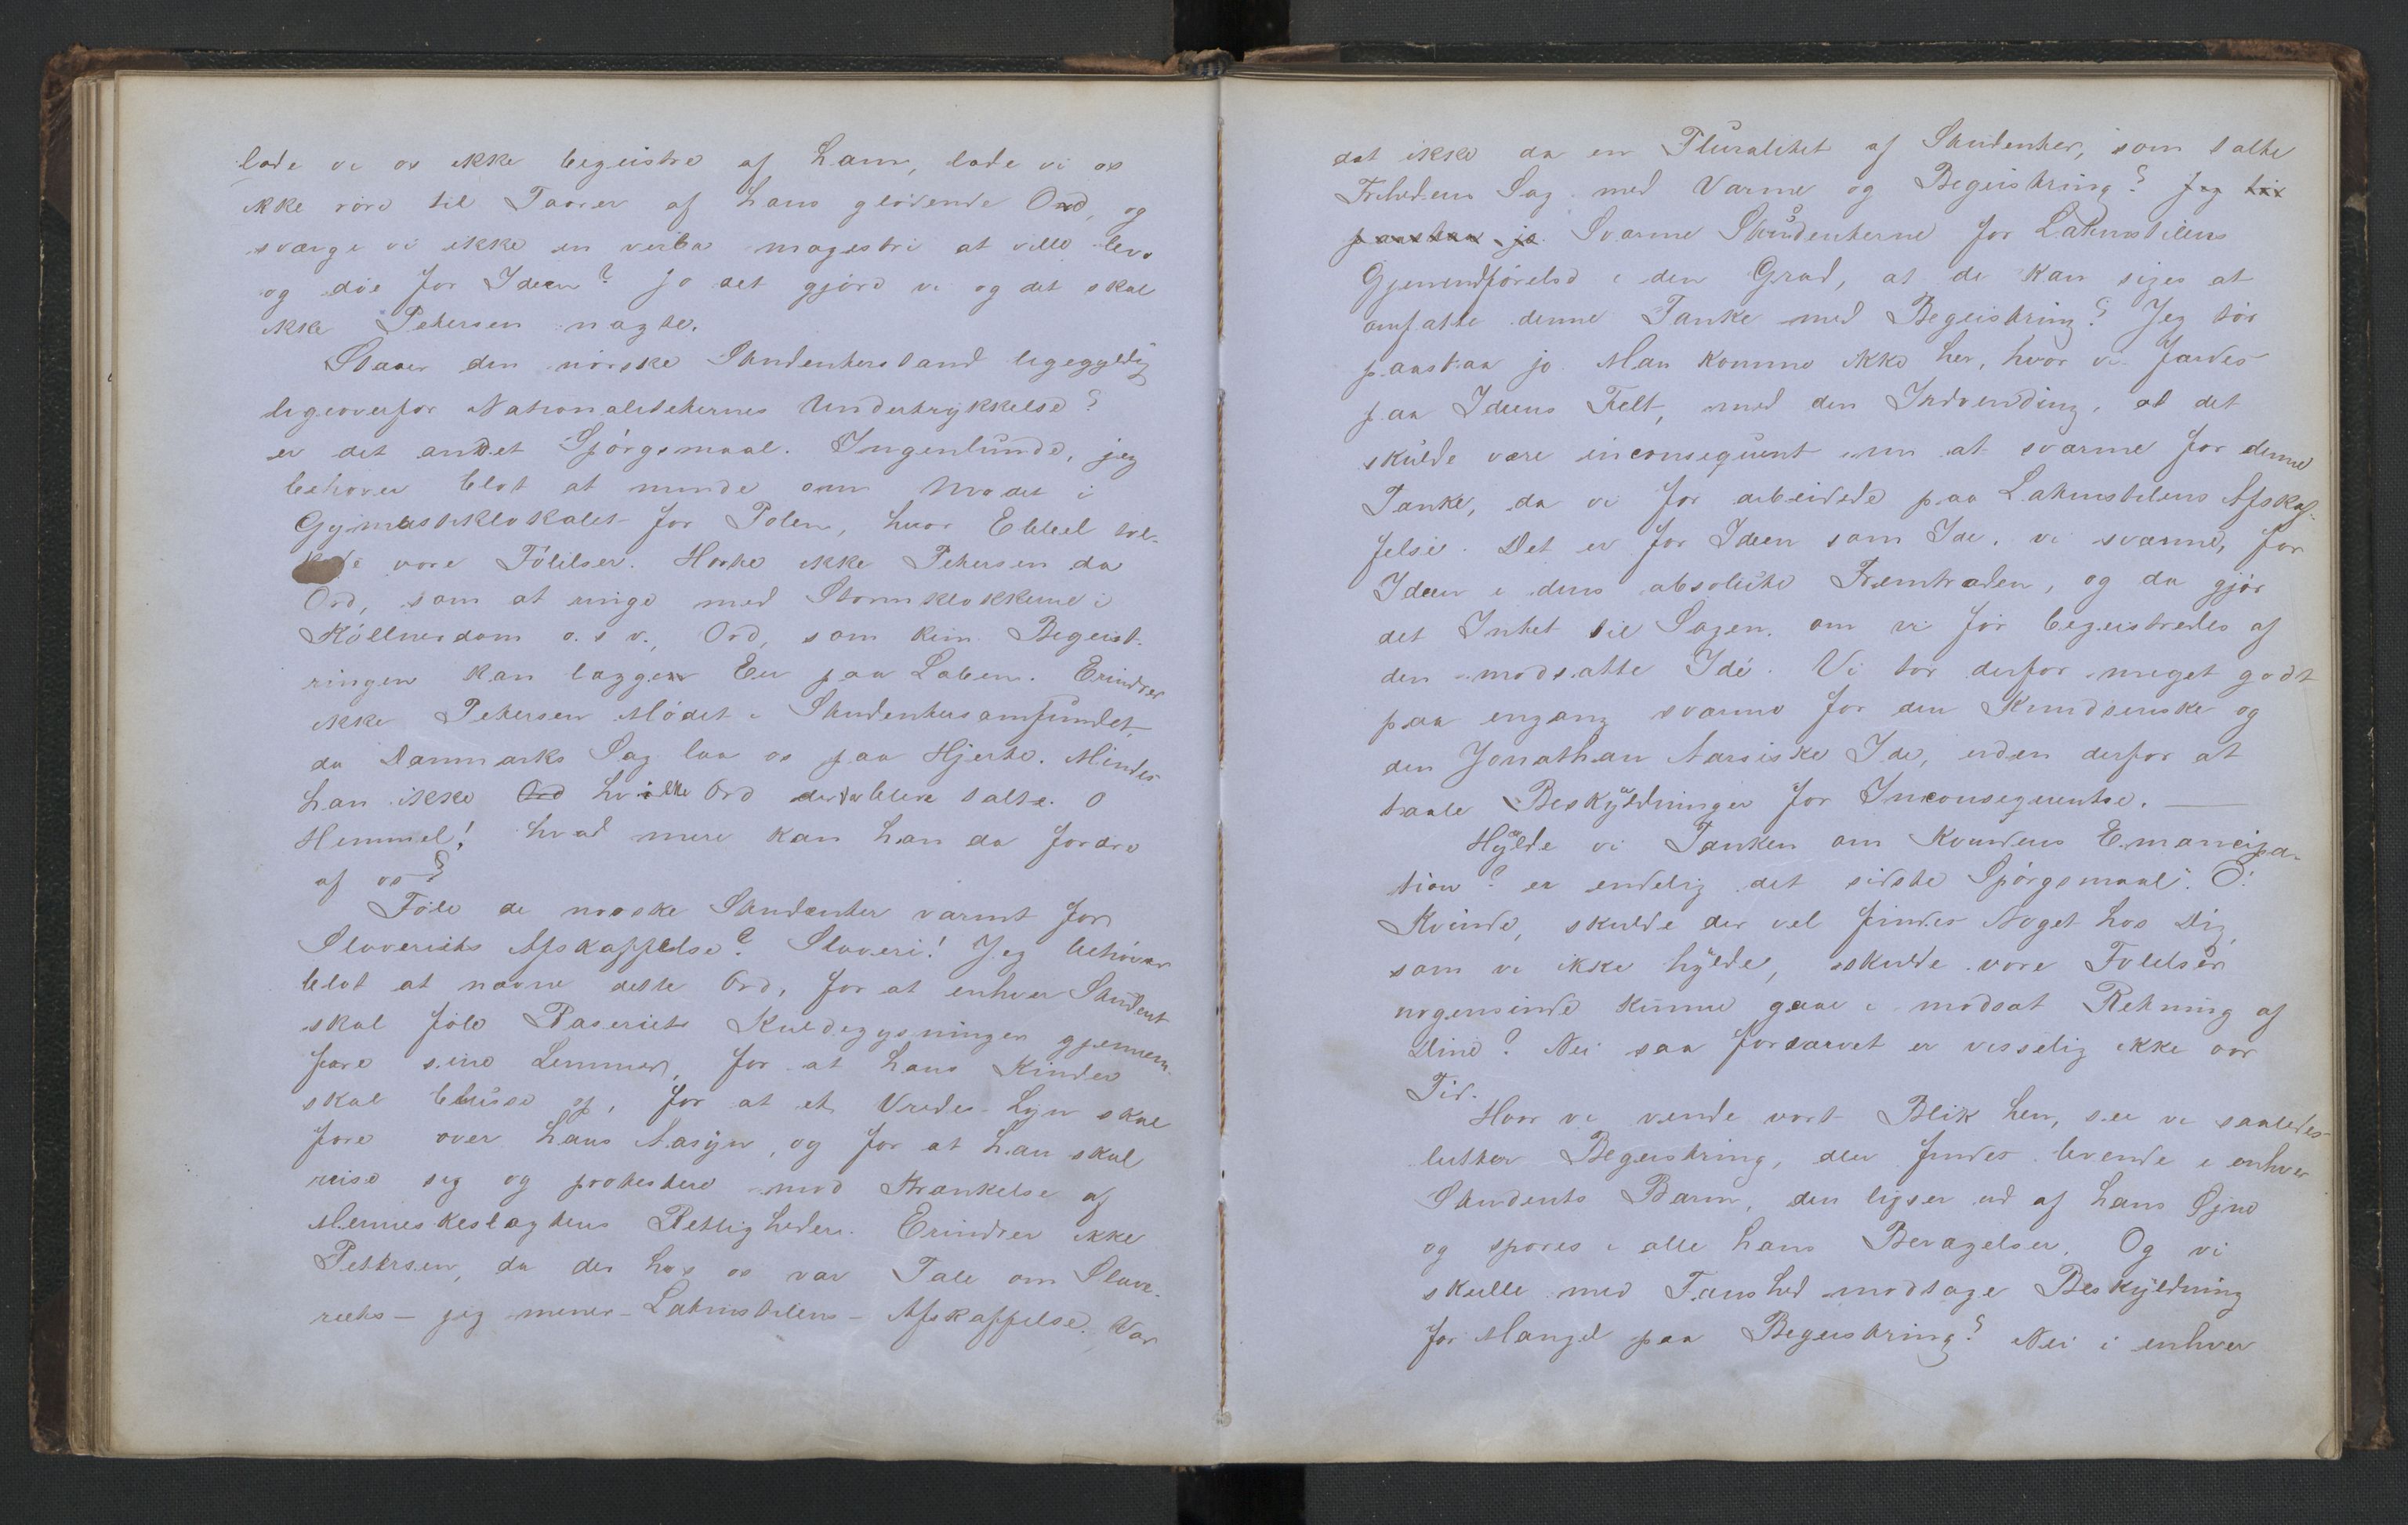 lade vi os ikke begeistre af ham, lade vi os
ikke röre til Taarer af hans glödende Ord, og
sværge vi ikke in verba magistri at ville leve
og döe for Ideen? Jo det gjöre vi og det skal
ikke Petersen nægte.
Staaer den norske Studenterstand ligegyldig
ligeoverfor Nationaliteternes Undertrykkelse?
er det andet Spörgsmaal. Ingenlunde, jeg
behøver blot at minde om Mødet i
Gymnastiklokalet for Polen, hvor Ebbel tol-
kede vore Fölelser. Hørte ikke Petersen da
Ord, som at ringe med Stormklokkerne i
Köllnerdom o. s v., Ord, som kun Begeist-
ringen kan lægge En paa Læben. Erindrer
ikke Petersen Mödet i Studentersamfundet,
da Danmarks Sag laa os paa Hjerte. Mindes
han ikke Ord hvilke Ord der da bleve talte. O
Himmel! hvad mere kan han da fordre
af os?
Föle de norske Studenter varmt for
Slaveriets Afskaffelse? Slaveri! Jeg behöver
blot at nævne dette Ord, for at enhver Student
skal föle Raseriets Kuldegysninger gjennem-
fare sine Lemmer, for at hans Kinder
skal blusse op, for at et Vredes-Lyn skal
fare over hans Aasyn, og for at han skal
reise sig og protestere mod Krænkelse af
Menneskeslægtens Rettigheder. Erindrer ikke
Petersen, da der hos os var Tale om Slave-
riets – jeg mener – Latinstilens – Afskaffelse. Var
det ikke da en Pluralitet af Studenter, som talte
Frihedens Sag med Varme og Begeistring? Jeg tör
paastaa jo. Sværme Studenterne for Latinstilens
Gjenindförelse i den Grad, at de kan siges at
omfatte denne Tanke med Begeistring? Jeg tör
paastaa jo. Man komme ikke her, hvor vi færdes
paa Ideens Felt, med den Indvending, at det
skulde være inconsequent nu at sværme for denne
Tanke, da vi för arbeidede paa Latinstilens Afskaf-
felse. Det er for Ideen som Ide, vi sværme, for
Ideen i dens absolute Fremtræden, og da gjör
det Intet til Sagen, om vi för begeistredes af
den modsatte Idé. Vi tör derfor meget godt
paa engang sværme for den Knudsenske og
den Jonathan Aarsiske Ide, uden derfor at
taale Beskyldninger for Inconsequentse. —
Hylde vi Tanken om Kvindens Emancipa-
tion? er endelig det sidste Spörgsmaal. O!
Kvinde, skulde der vel findes Noget hos Dig,
som vi ikke hylde, skulde vore Følelser
nogensinde kunne gaae i modsat Retning af
Dine? Nei saa fordærvet er visselig ikke vor
Tid.
Hvor vi vende vort Blik hen, see vi saaledes
lutter Begeistring, den findes levende i enhver
Students Barm, den lyser ud af hans Øjne
og spores i alle hans Bevægelser. Og vi
skulle med Taushed modtage Beskyldning
for Mangel paa Begeistring? Nei i enhver